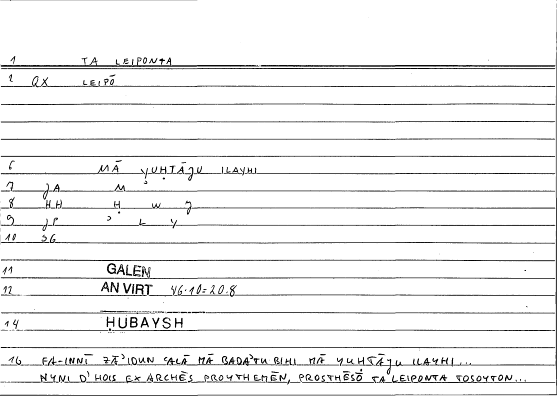 1 TA LEIPONTA
2 QX LEIPŌ
6 MĀ YUḤTĀJU ILAYHI
7 JA M
8 HH Ḥ W J
9 JP ʾ L Y
10 SG
11 GALEN
12 AN VIRT 46.10=20.8
14 ḤUBAYSH
16 FA-INNĪ ZĀʾIDUN ʿALĀ MĀ BADAʾTU BIHI MĀ YUḤTĀJU ILAYHI...
NYNI D' HOIS EX ARCHĒS PROYTHEMĒN, PROSTHĒSŌ TA LEIPONTA TOSOYTON...